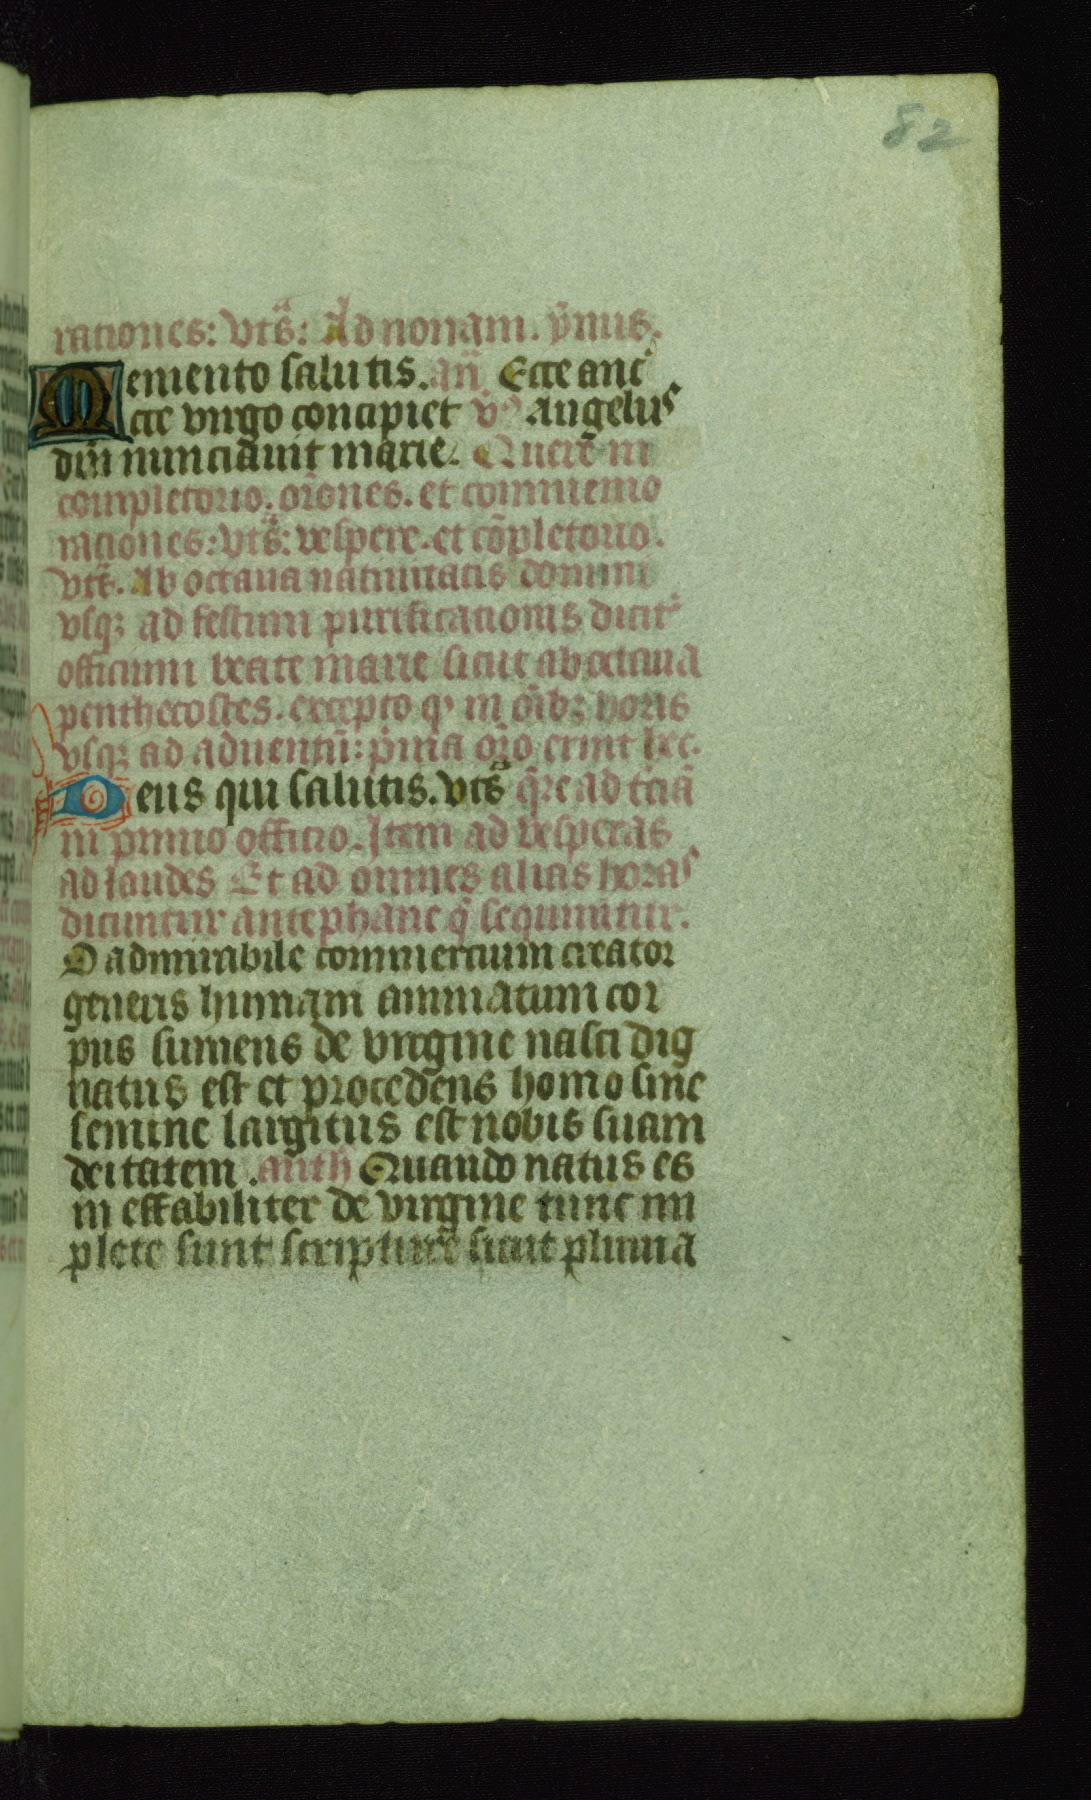 82
rationes: vts̃: Ad nonam. ỹmus.
Memento salutis. añ. Ecce anc̾
cte virgo concipiet v̾ Angelus
dñi nunciavit marie. Querẽ in
completorio. orõnes. et commemo
rationes: vts̃: vespere. et cõpletorio.
vts̃. Ab octaua natiuitatis domini
vsqꝫ ad festum purificationis dicit᷑
officium beate marie sicut ab octaua
penthecostes. excepto ꝙ in oĩbꝫ horis
vsqꝫ ad aduentũ: p̃ma orõ erint hec.
Deus qui salutis. vts̃ q̃re ad t̃ciã
in primo officio. Item ad vesperas
ad laudes Et ad omnes alias horas
dicuntur antephane q̃ sequuntur.
O admirabile commercium creator
generis humani animatum cor
pus sumens de virgine nasci dig
natus est et procedens homo sine
semine largitus est nobis suam
deitatem. anth Quando natus es
in effabiliter de virgine tunc im
plete sunt scripture sicut pluuia